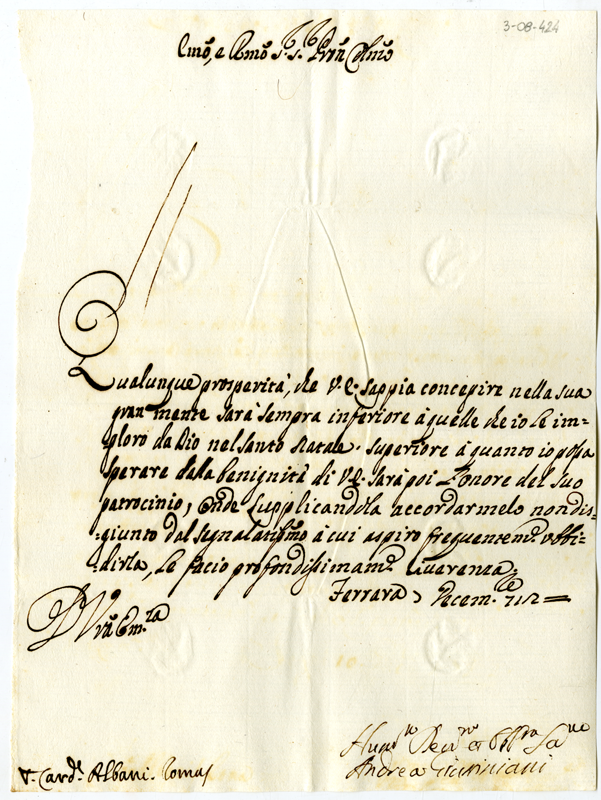 3-08-424
Emõ, e Rmõ S.r S.r Prõn Colmõ
Qualunque prosperità, che V.E. sappia concepire nella sua
gran mente sarà sempre inferiore à quelle che io le im=
ploro da Dio nel Santo Natale. Superiore à quanto io possa
sperare dalla benignità di V.E. sarà poi l'onore del suo
patrocinio, onde supplicandola accordarmelo non dis=
=giunto dal segnalatissmo à cui aspiro frequentem.e vbbi=
dirla, le facio profondissimam.e riuerenza.
Ferrara Decem.re 712
D V Vrã Em.za
Hum.mo Deu.mo et Obb.mo
Andrea
S. Card.l Albani. Roma